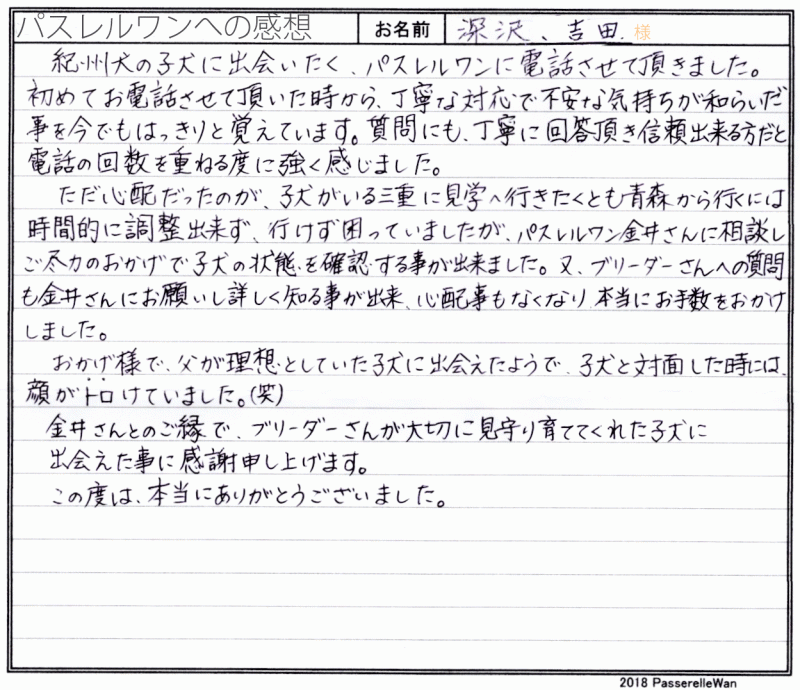 パスレルワンへの感想 お名前 深沢、吉田 様
紀州犬の子犬に出会いたく、パスレルワンに電話させて頂きました。
初めてお電話させて頂いた時から、丁寧な対応で不安な気持ちが和らいだ
事を今でもはっきりと覚えています。質問にも、丁寧に回答頂き信頼出来る方だと
電話の回数を重ねる度に強く感じました。
ただ心配だったのが、子犬がいる三重に見学へ行きたくとも青森から行くには
時間的に調整出来ず、行けず困っていましたが、パスレルワン金井さんに相談し
ご尽力のおかげで子犬の状態を確認する事が出来ました。又、ブリーダーさんへの質問
も金井さんにお願いし詳しく知る事が出来、心配事もなくなり、本当にお手数をおかけ
しました。
おかげ様で、父が理想としていた子犬に出会えたようで、子犬と対面した時には、
顔がトロけていました。(笑)
金井さんとのご縁で、ブリーダーさんが大切に見守り育ててくれた子犬に
出会えた事に感謝申し上げます。
この度は、本当にありがとうございました。
2018 PasserelleWan